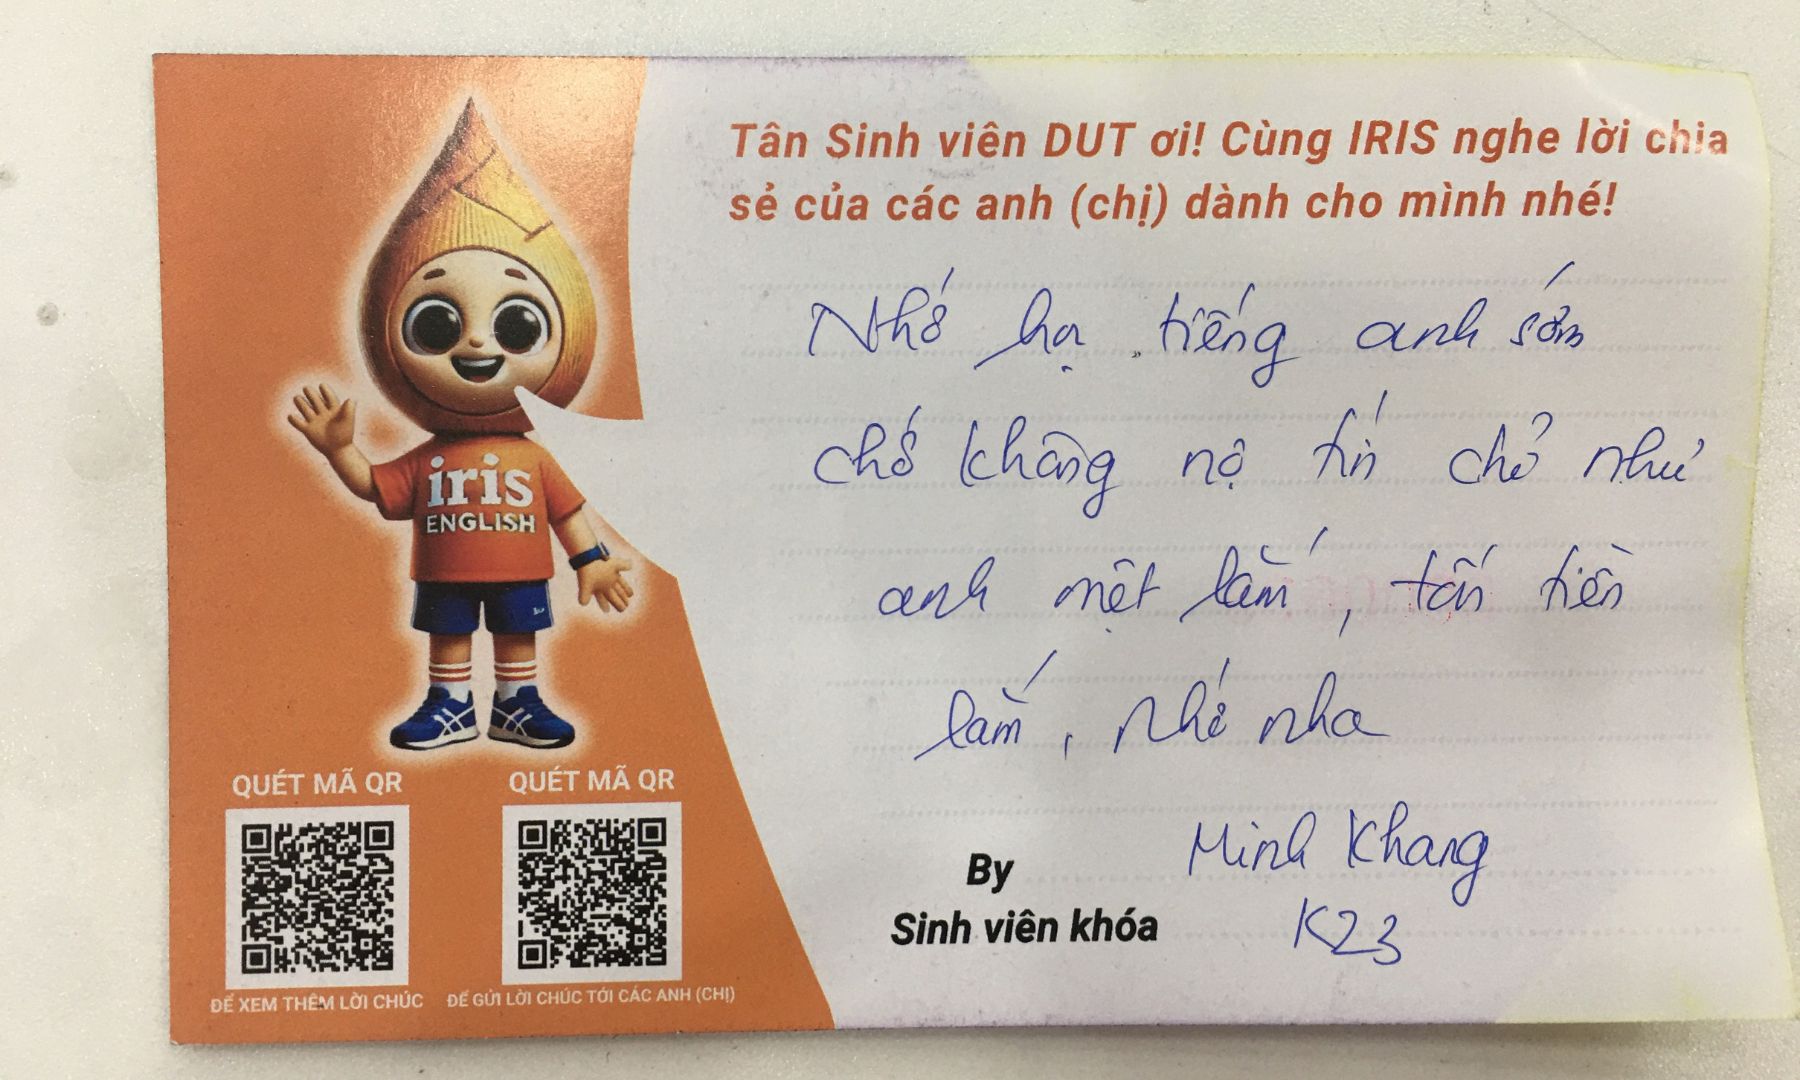 Tân Sinh viên DUT ơi! Cùng IRIS nghe lời chia
sẻ của các anh (chị) dành cho mình nhé!
Nhớ họ tiếng anh sớm
chớ không nợ tín chỉ như
anh mệt lắm, tốn tiền
lắm, nhé nha
iris
ENGLISH
QUÉT MÃ QR
QUÉT MÃ QR
ĐỂ XEM THÊM LỜI CHÚC
ĐỂ GỬI LỜI CHÚC TỚI CÁC ANH (CHỊ)
By Minh Khang
Sinh viên khóa K23